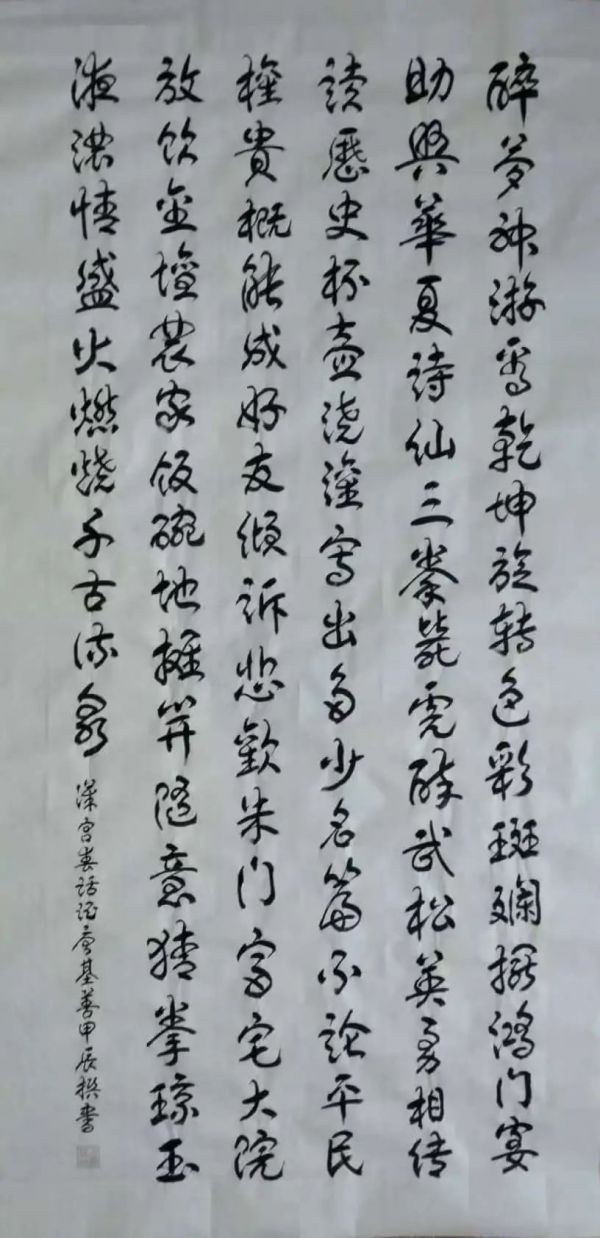 醉梦神游舀乾坤旋转色彩斑斓摆鸿门宴
助兴华夏诗仙三拳毙虎醉武松英勇相传
读历史杯壶浇灌写出多少名篇不论平民
權貴概能成好友倾訴悲歡朱门富宅大院
放饮金壇農家饭碗地摊笄随意猜拳琼玉
液浓情盛火燃燒千古流泉
深宫春话酒 基善甲辰撰書